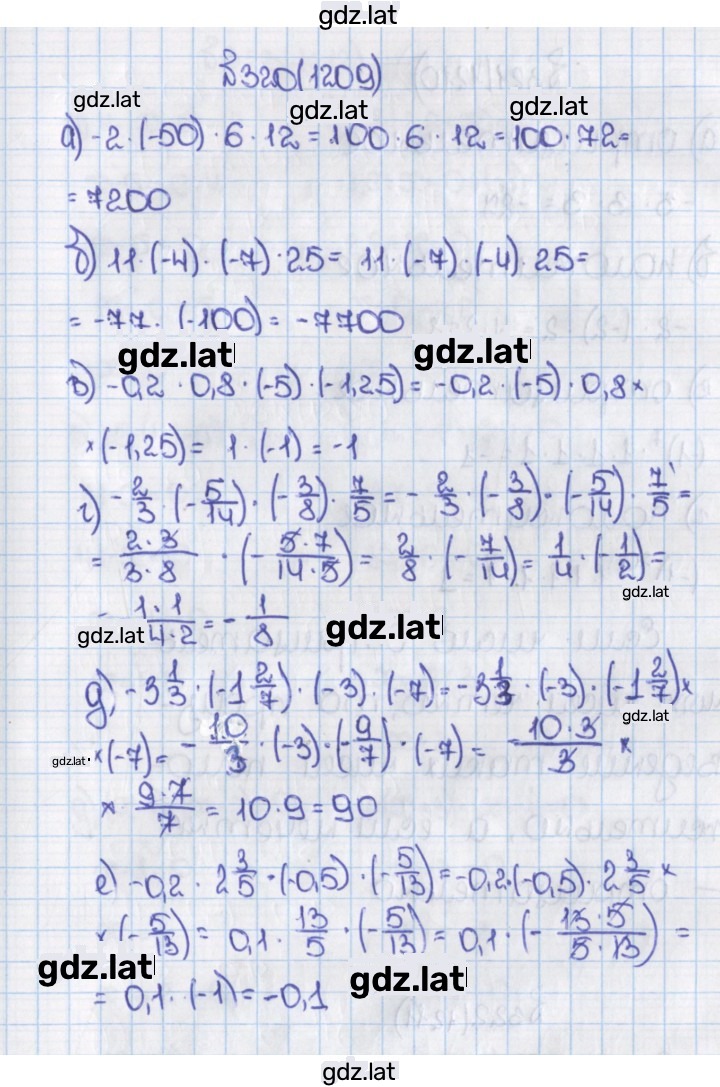 gdz.lat
№320(1209)
gdz.lat gdz.lat gdz.lat
а) -2 · (-50) · 6 · 12 = 100 · 6 · 12 = 100 · 72 =
= 7200
б) 11 · (-4) · (-7) · 25 = 11 · (-7) · (-4) · 25 =
= -77 · (-100) = -7700
gdz.lat gdz.lat
в) -0,2 · 0,8 · (-5) · (-1,25) = -0,2 · (-5) · 0,8 ×
× (-1,25) = 1 · (-1) = -1
г) -2/3 · (-5/14) · (-3/8) · 7/5 = -2/3 · (-3/8) · (-5/14) · 7/5 =
= 2·3/3·8 · (-5·7/14·5) = 2/8 · (-7/14) = 1/4 · (-1/2) =
gdz.lat
= - 1·1/4·2 = -1/8
gdz.lat gdz.lat
д) -3 1/3 · (-1 2/7) · (-3) · (-7) = -3 1/3 · (-3) · (-1 2/7) ×
gdz.lat
× (-7) = -10/3 · (-3) · (-9/7) · (-7) = -10·3/3 ×
gdz.lat
× 9·7/7 = 10 · 9 = 90
е) -0,2 · 2 3/5 · (-0,5) · (-5/13) = -0,2 · (-0,5) · 2 3/5 ×
× (-5/13) = 0,1 · 13/5 · (-5/13) = 0,1 · (-13·5/5·13) =
gdz.lat gdz.lat
= 0,1 · (-1) = -0,1
gdz.lat